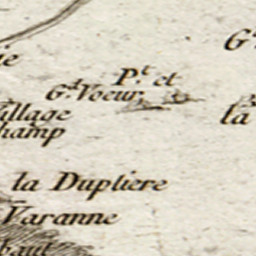 G.
ie
P.t et
G.d Voeur
illage
la
hamp
la Dupliere
Varanne
baut